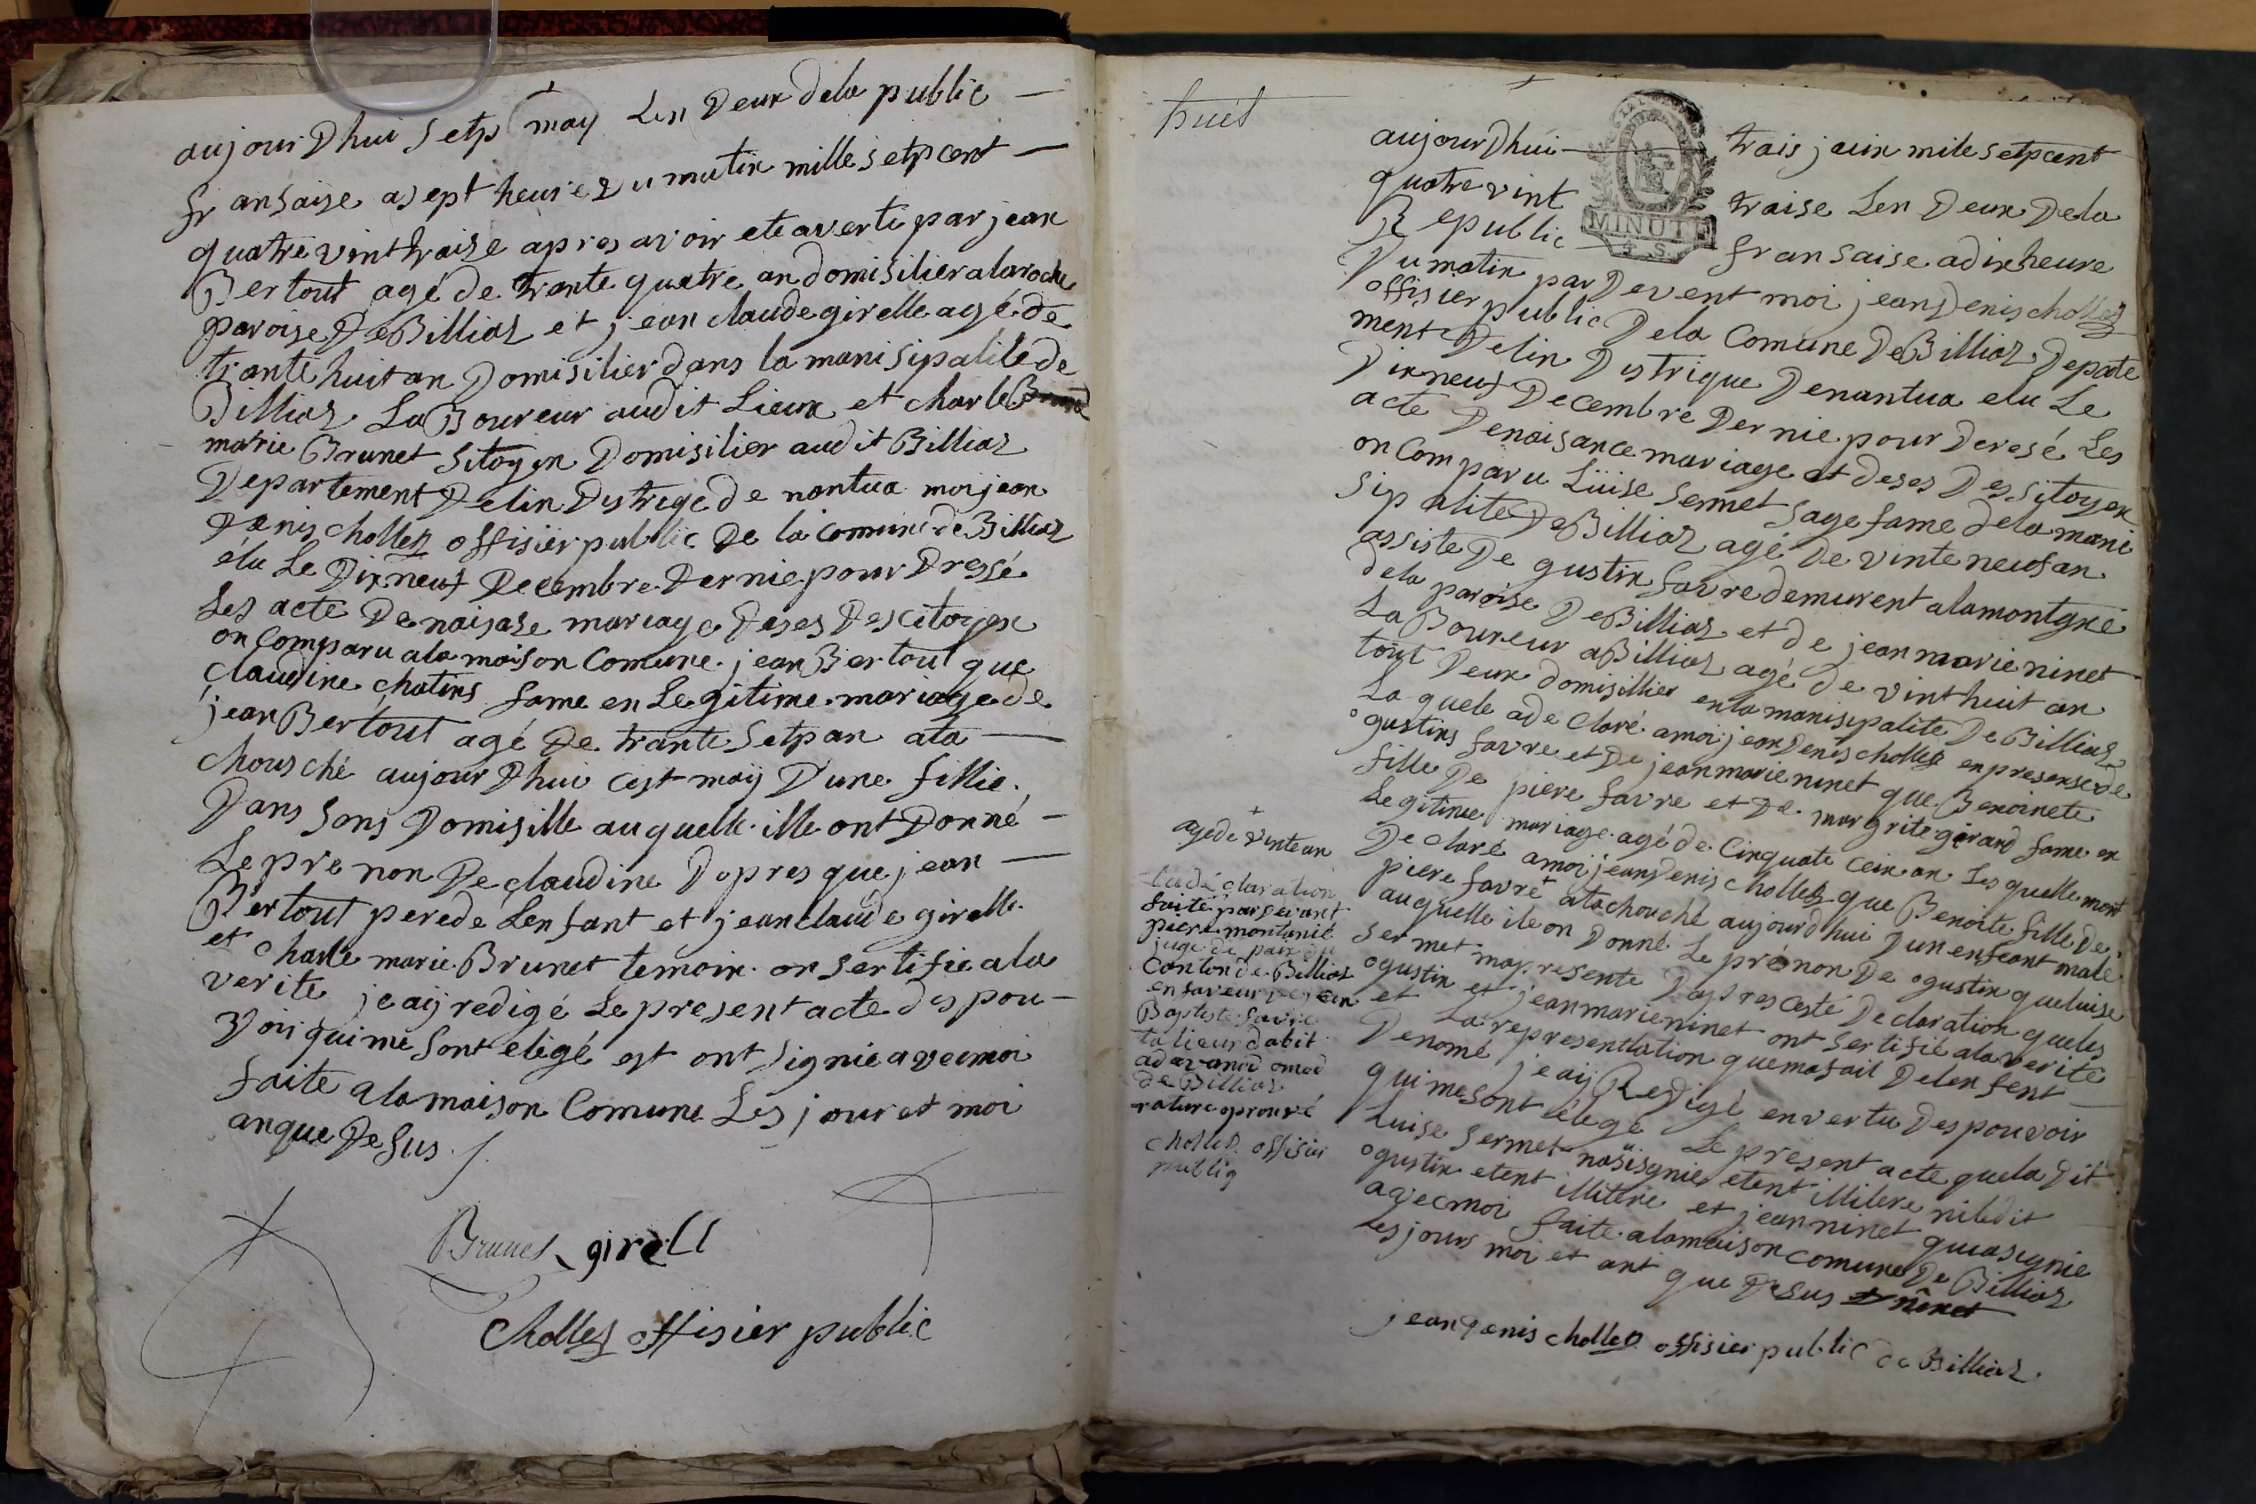 aujour Dhui Setp may Len Deux dela public
fr ansaise a sept heure Du matin mille setp cent
quatre vint traise apres avoir ete averti par jean
Bertout agé de trante quatre an domisilier a la roche
paroise De Billiaz et jean claude girelle agé de
trante huit an Domisilier dans la manisipalité de
Billiaz La Boureur audit Lieux et charle
marie Brunet sitoyen Domisilier audit Billiaz
Departement Delin Distrige de nantua moi jean
Denis chollez offisier public De la comune de Billiaz
élu Le Dixneuf Decembre Dernie pour Dressé
Les acte De naisase mariage Deses Des citoyen
on comparu ala maison Comune jean Bertout que
Claudine chatins fame en Legitime mariage de
jean Bertout agé De trante setp an ata
chousché aujour Dhui cest maij D'une fillie
Dans sons Domisille au quelle ille ont Donné
Le pre non De claudine Dapres que jean
Bertout pere de Lenfant et jean claude girelle
et charle marie Brunet temoin on sertifie ala
verite je aij redigé Le present acte des pou-
voir qui me sont elégé est ont signie avec moi
faite a la maison Comune Les jour et moi
an que De sus ./.
Brunet girell
Chollez offisier public
huit
MINUTE
4. S.
aujourdhui trais juin mile setp cent
quatre vint traise Len Deux Dela
Republic fransaise a dix heure
Du matin par Devent moi jean Denis chollez
offisier public De la Comune De Billiaz Depate
ment Delin Distrique De nantua elu Le
Dixneuf Decembre Dernie pour Deresé Les
acte De naisance mariage et deses Des sitoyen
on Comparu Luise sermet sage fame de la mani
sipalite De Billiaz agé De vinte neuf an
assiste De gustin favre demurent a la montgne
de la paroise De Billiaz et de jean marie ninet
La Boureur a Billiaz agé de vint huit an
tout Deux domisillier en la manisipalite De Billiaz
La quele a de Claré a moi jean Denis chollez en presense de
ogustins favre et De jean marie ninet que Benoinete
fille De piere favre et De margrite girard fame en
Legitime mariage agé de Cinquate cein an Les quelle mont
Declaré a moi jean Denis chollez que Benoite fille De
piere favre + atachouché aujourdhui Dun enfeant male
au quelle ile on Donné Le prénon De ogustin que luise
sermet ma presente Dapres cesté Declaration que les
ogustin et jean marie ninet ont sertifié a la verité
et La representation que ma fait De lenfent
Denomé je aij Redigé en vertu Des pouvoir
qui me sont élegé Le present acte que la Dit
Luise sermet na signie etent illitere ni ledit
ogustin etent illitere et jean ninet qui a signie
avec moi faite a la maison comune De Billiaz
Les jours moi et ant que De sus ninet
jean Denis chollez offisier public de Billiaz
+
agé de vinte an
La déclaration
faite par devant
piere montanié
juge de paix du
Canton de Billiaz
en faveur De jean
Baptiste favre
talieur dabit
de Billiaz
rature aprouvé
chollez offisier
publiq